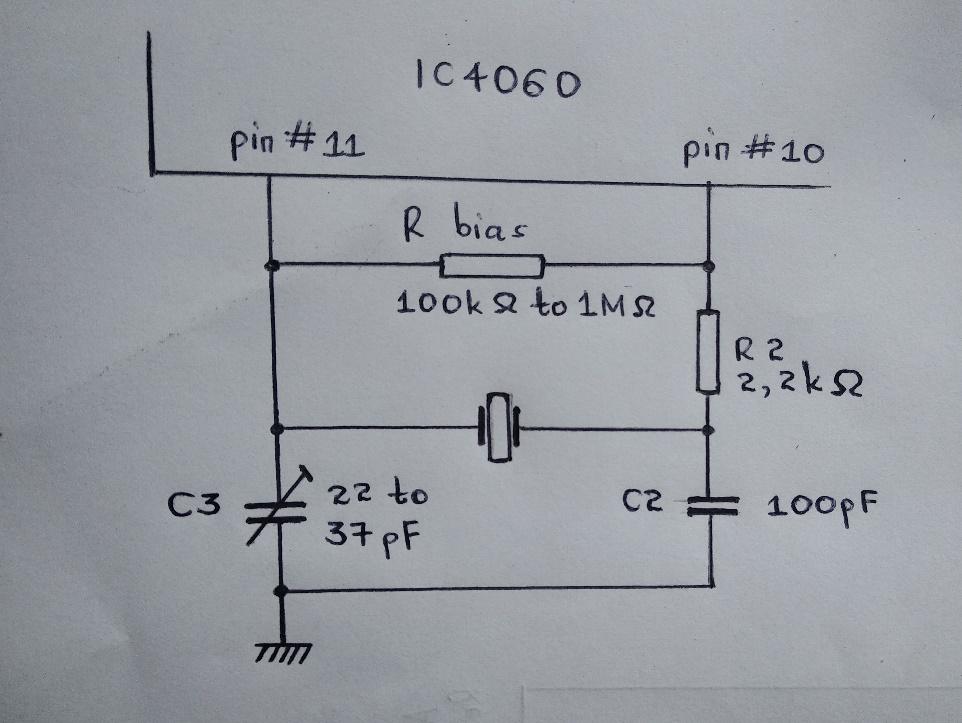 IC4060
pin #11
pin #10
R bias
100kΩ to 1MΩ
R2
2,2kΩ
C3
22 to
37pF
C2
100pF